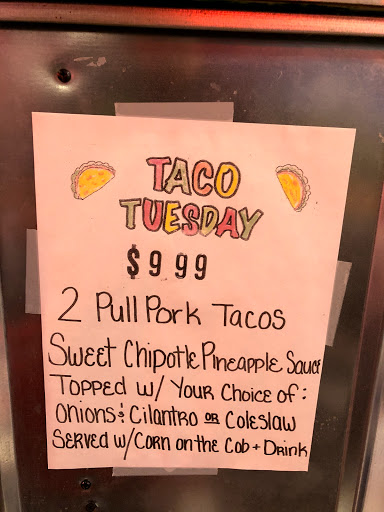 TACO
TUESDAY
$9.99
2 Pull Pork Tacos
Sweet Chipotle Pineapple Sauce
Topped w/ Your Choice of:
Onions & Cilantro OR Coleslaw
Served w/Corn on the Cob + Drink